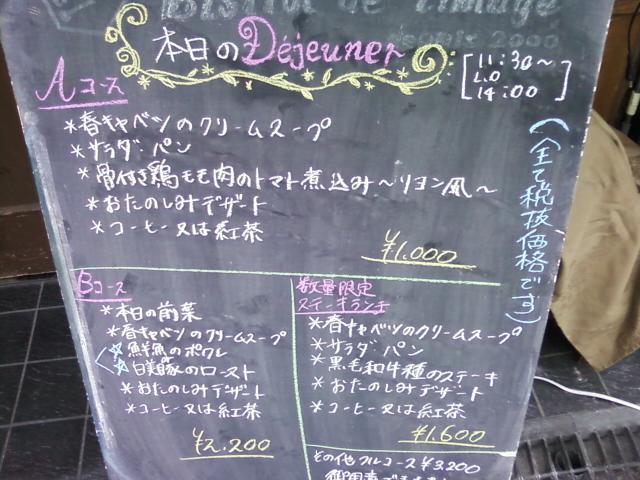 Bistrot de l'image
depuis 2000
本日のDéjeuner
11:30～
L.O
14:00
Aコース
*春キャベツのクリームスープ
*サラダ・パン
*骨付き鶏もも肉のトマト煮込み～リヨン風～
*おたのしみデザート
*コーヒー又は紅茶
¥1,000
(全て税抜価格です)
Bコース
*本日の前菜
*春キャベツのクリームスープ
☆鮮魚のポワレ
☆白美豚のロースト
*おたのしみデザート
*コーヒー又は紅茶
¥2,200
数量限定
ステーキランチ
*春キャベツのクリームスープ
*サラダ・パン
*黒毛和牛種のステーキ
*おたのしみデザート
*コーヒー又は紅茶
¥1,600
その他フルコース¥3,200